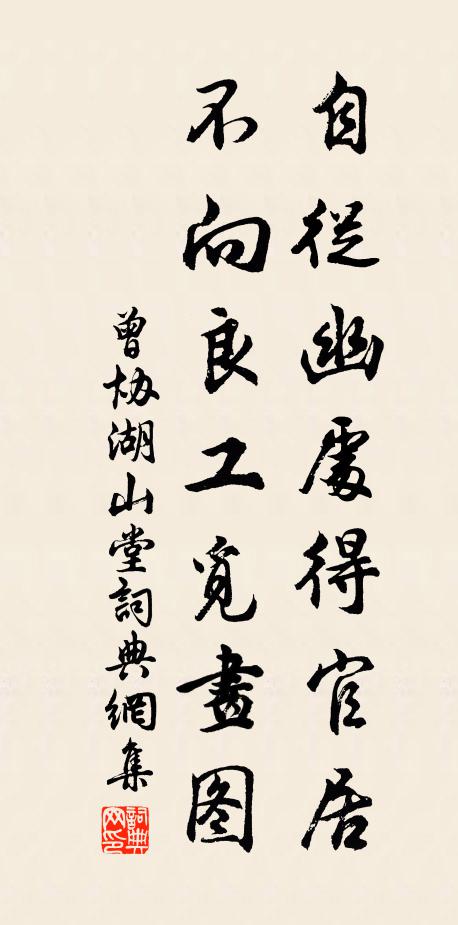 自從幽處得官居
不向良工覓畫图
曾协湖山堂詞典網集
詞典網印